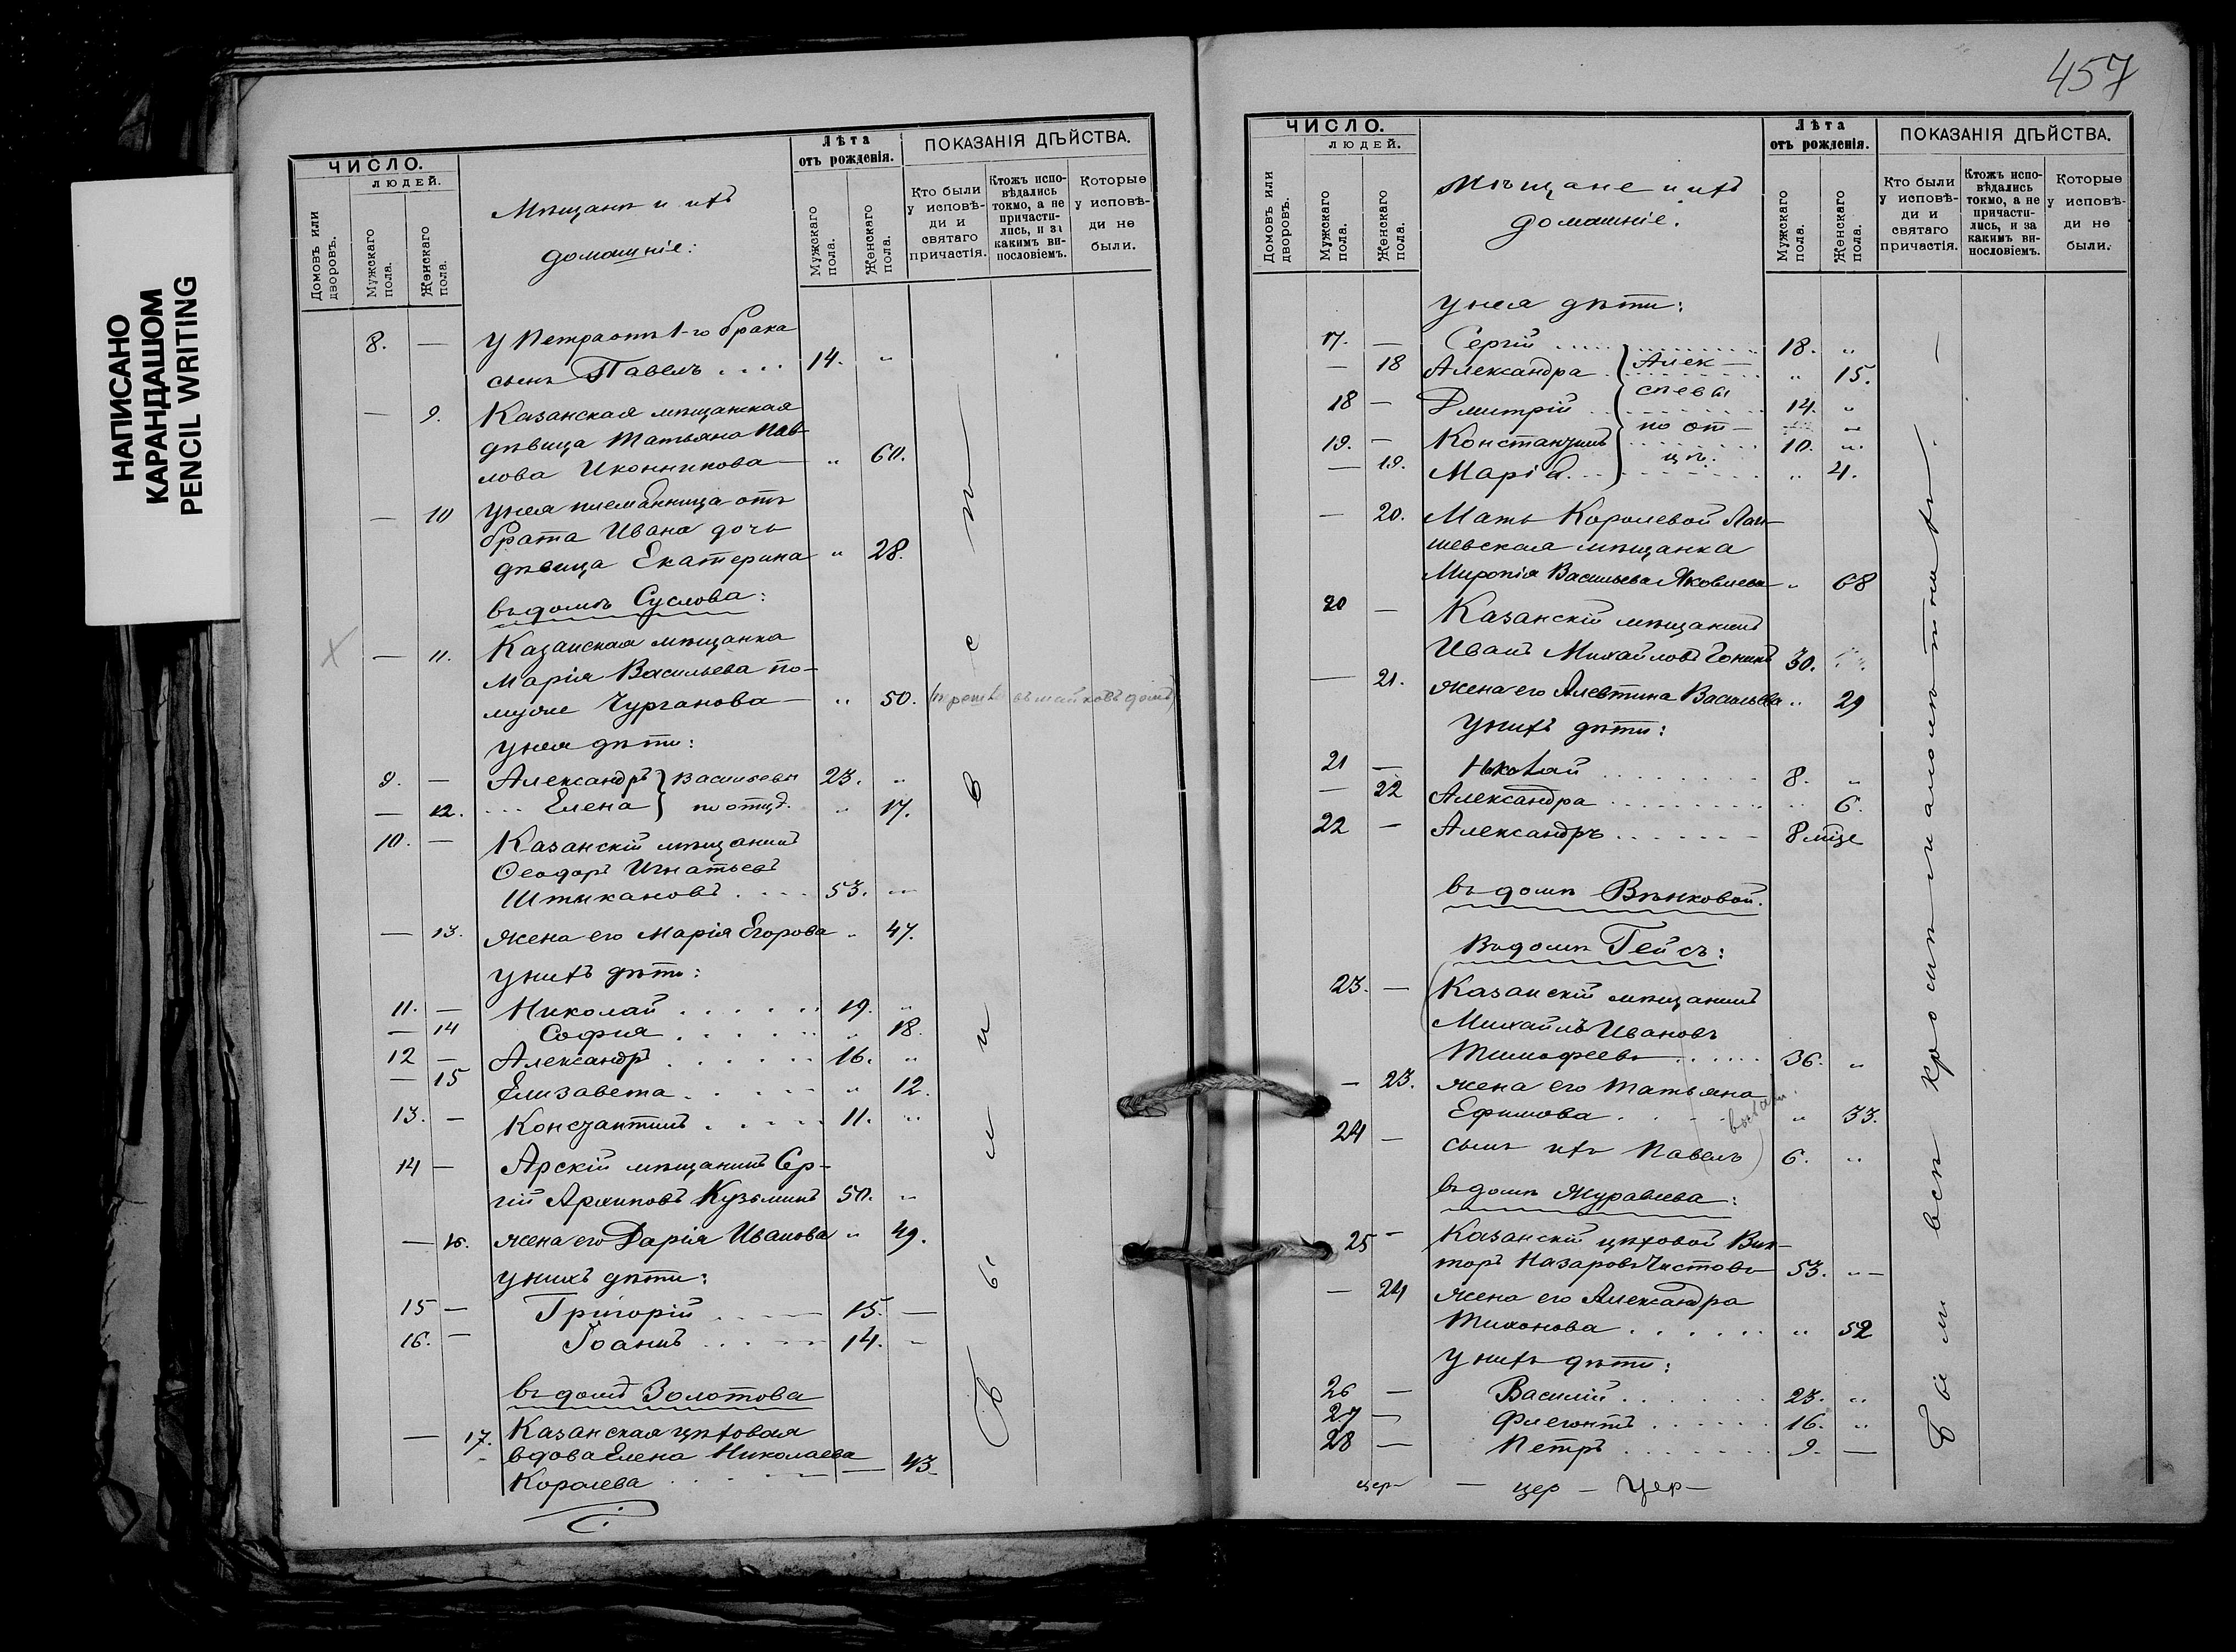 НАПИСАНО
КАРАНДАШОМ
PENCIL WRITING
ЧИСЛО.
ЛЮДЕЙ.
Домовъ или дворовъ.
Мужскаго пола.
Женскаго пола.
Мѣщане и ихъ
домашніе:
Лѣта
отъ рожденія.
Мужскаго пола.
Женскаго пола.
ПОКАЗАНІЯ ДѢЙСТВА.
Кто были у исповѣ-ди и святаго причастія.
Ктожъ испо-вѣдались токмо, а не причасти-лись, и за какимъ ви-нословіемъ.
Которые у исповѣ-ди не были.
8. — У Петра отъ 1-го брака
сынъ Павелъ .... 14. "
— 9. Казанская мѣщанская
дѣвица Татьяна Пав-
лова Иконникова — " 60.
— 10 У нея племянница отъ
брата Ивана дочь
дѣвица Екатерина " 28.
въ домѣ Суслова:
X — 11. Казанская мѣщанка
Марія Васильева по-
мужѣ Чурганова — " 50.
У нея дѣти:
9. — Александръ } Васильевы 23. "
— 12. ... Елена } по отцѣ. " 17.
10. — Казанскій мѣщанинъ
Ѳеодоръ Игнатьевъ
Штыкановъ .... 53. "
— 13. жена его Марія Егорова " 47.
У нихъ дѣти:
11. — Николай ...... 19. "
— 14 Софія ...... " 18.
12 — Александръ ...... 16. "
— 15 Елизавета ..... " 12.
13. — Константинъ ..... 11. "
14 — Арскій мѣщанинъ Сер-
гій Архиповъ Кузьминъ 50. "
— 16. жена его Дарія Иванова " 49.
У нихъ дѣти:
15 — Григорій .... 15. —
16. — Іоаннъ ..... 14. "
въ домѣ Золотова
— 17. Казанская цѣховая
вдова Елена Николаева
Королева — 43.
457
ЧИСЛО.
ЛЮДЕЙ.
Домовъ или дворовъ.
Мужскаго пола.
Женскаго пола.
Мѣщане и ихъ
домашніе.
Лѣта
отъ рожденія.
Мужскаго пола.
Женскаго пола.
ПОКАЗАНІЯ ДѢЙСТВА.
Кто были у исповѣ-ди и святаго причастія.
Ктожъ испо-вѣдались токмо, а не причасти-лись, и за какимъ ви-нословіемъ.
Которые у исповѣ-ди не были.
У нея дѣти:
17. — Сергій ..... } Алек- 18. "
— 18 Александра . } сѣевы " 15.
18 — Дмитрій .. } по от- 14. "
19. — Константинъ } цѣ. 10. "
— 19. Марія ... } " 4.
— 20. Мать Королевой Лаи-
шевская мѣщанка
Миропія Васильева Яковлева " 68
20 — Казанскій мѣщанинъ
Иванъ Михайловъ 30.
— 21. жена его Алевтина Васильева " 29
У нихъ дѣти:
21 — Николай ........ 8. "
— 22 Александра ........ " 6.
22 — Александръ ...... 8 мѣс
въ домѣ Вѣнковой.
Въ домѣ Гейсъ:
23. — Казанскій мѣщанинъ
Михаилъ Ивановъ
Тимофеевъ ...... 36. "
— 23. жена его Татьяна
Ефимова ...... " 33.
24 — сынъ ихъ Павелъ 6. "
въ домѣ Журавлева:
25 — Казанскій цѣховой Вик-
торъ Назаровъ Чистовъ 53. "
— 24 жена его Александра
Тихонова ...... " 52
У нихъ дѣти:
26 — Василій ...... 23. "
27 — Флегонтъ ...... 16. "
28 — Петръ ....... 9. —
— цер — цер —
Были всѣ
Были всѣ кромѣ малолѣтнихъ.